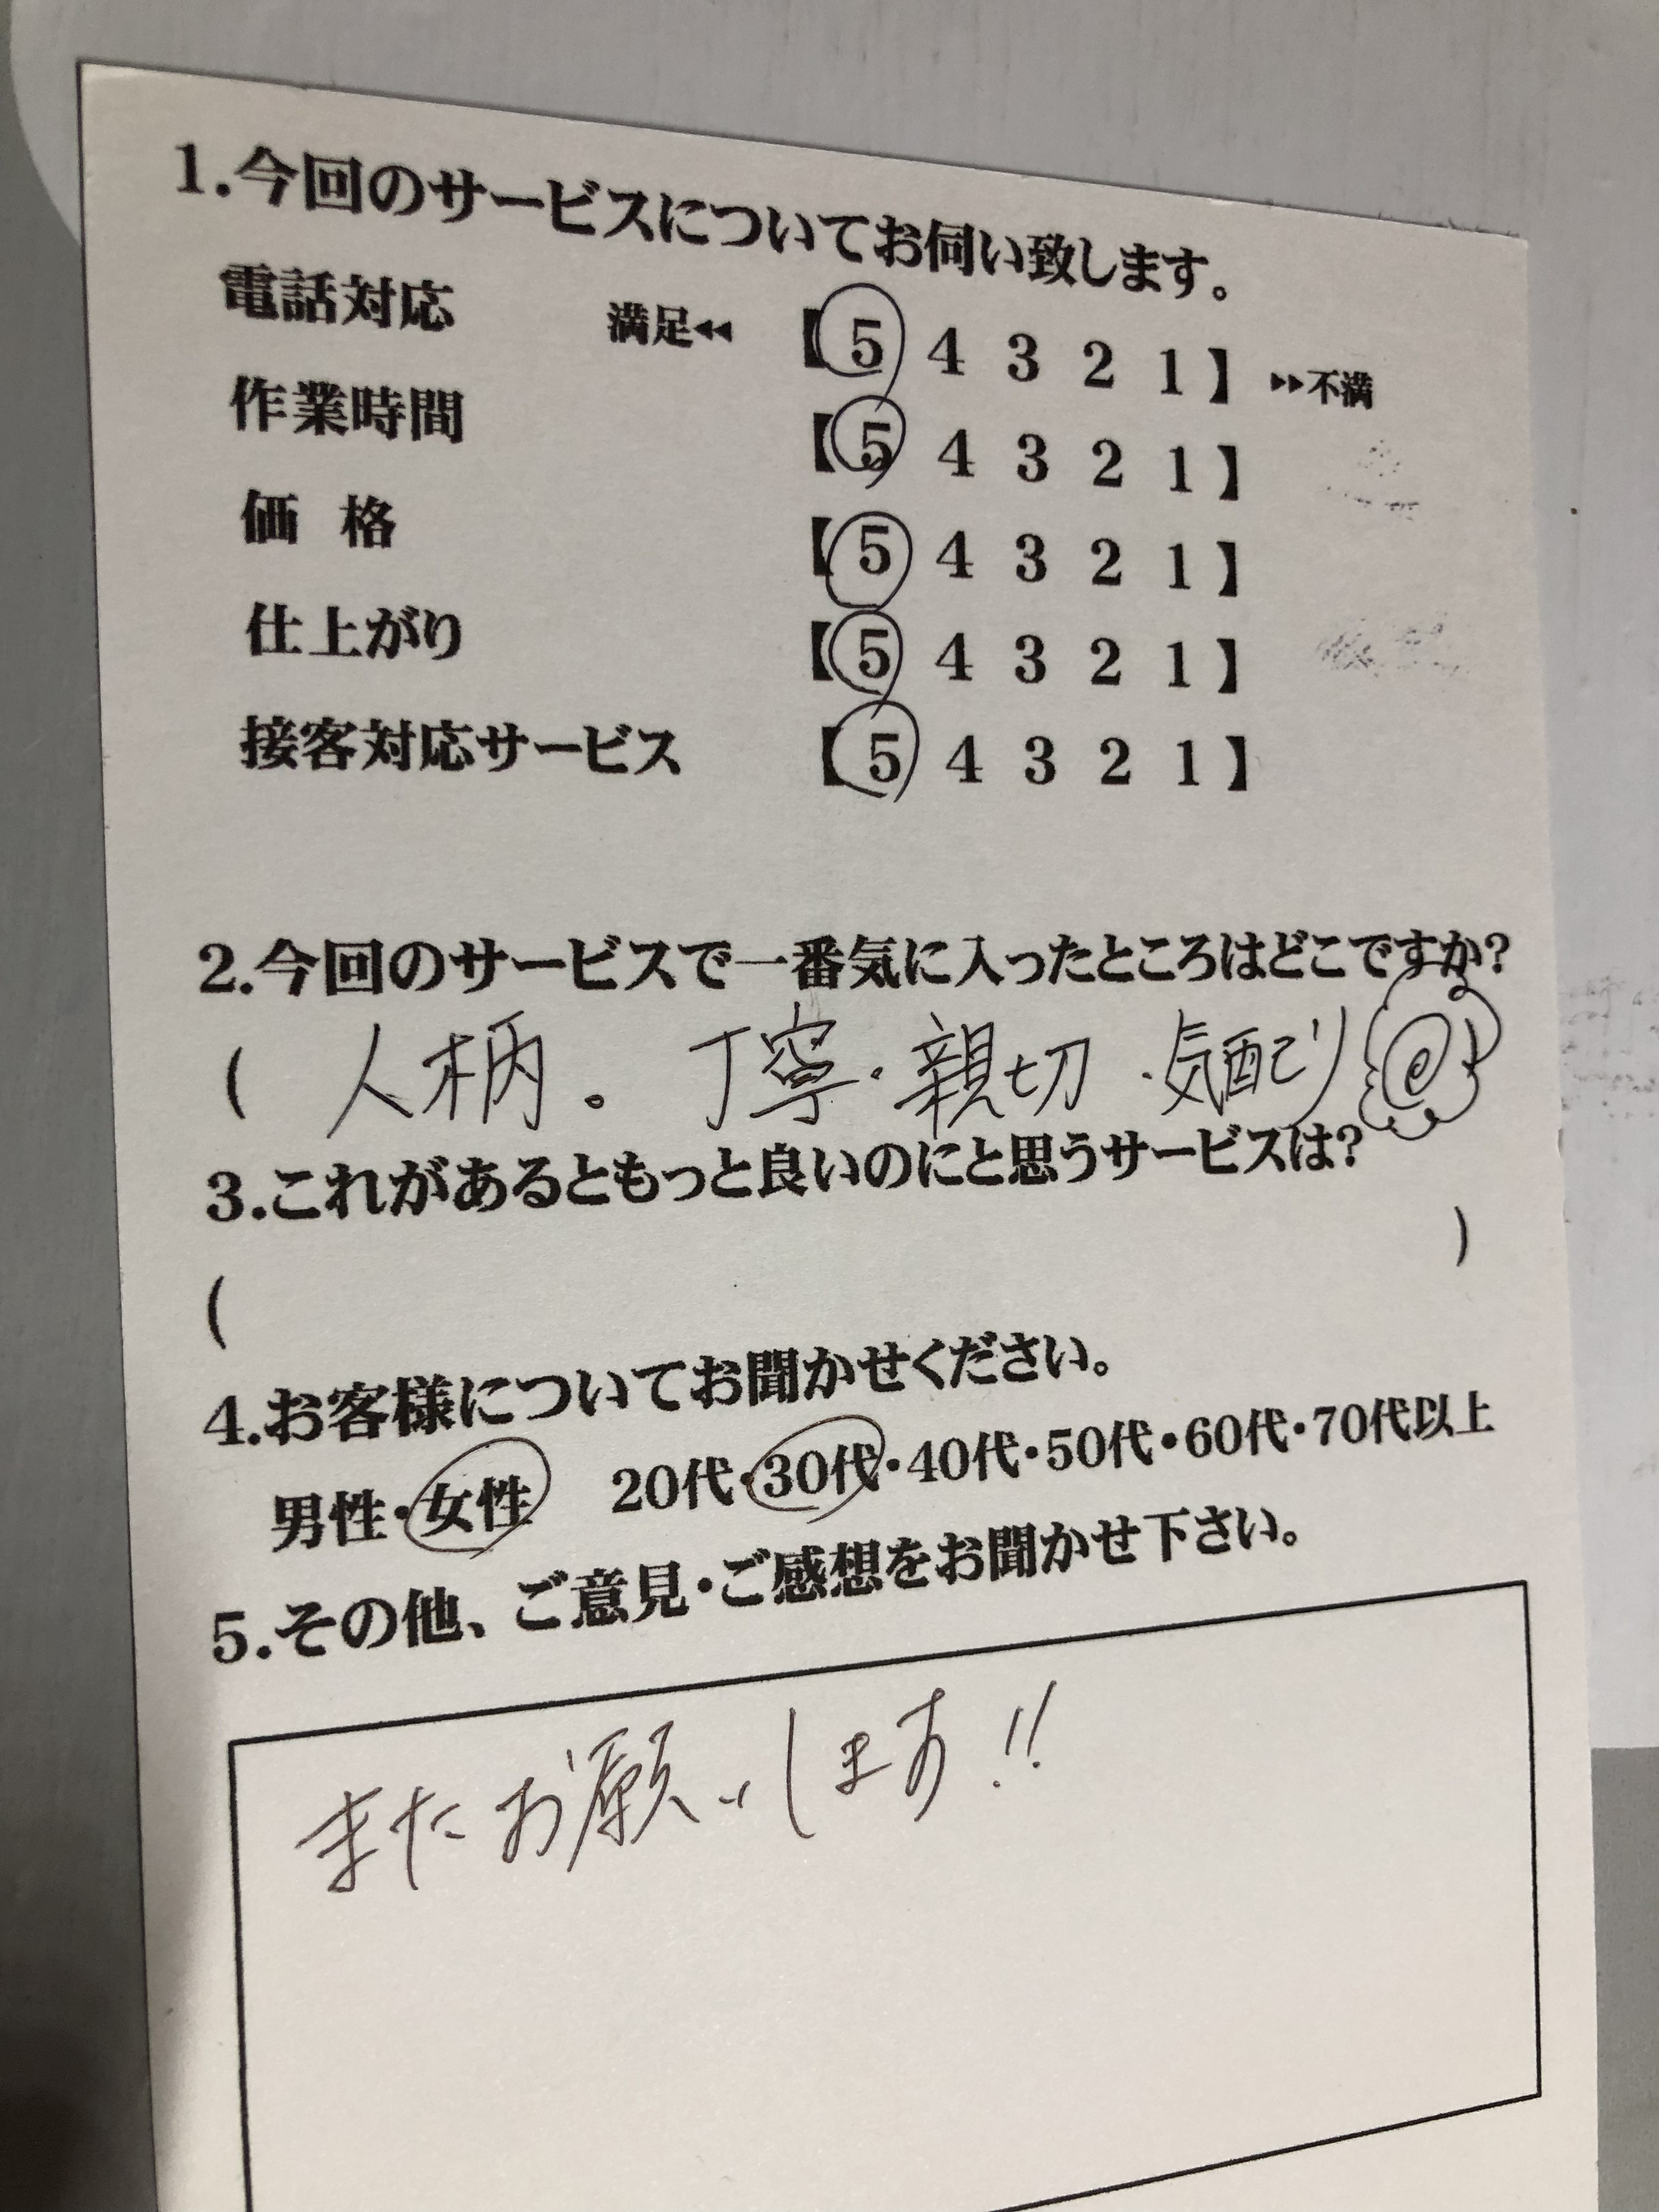 1.今回のサービスについてお伺い致します。
電話対応 満足◀◀ 【5 4 3 2 1】 ▶▶不満
作業時間 【5 4 3 2 1】
価 格 【5 4 3 2 1】
仕上がり 【5 4 3 2 1】
接客対応サービス 【5 4 3 2 1】
2.今回のサービスで一番気に入ったところはどこですか?
( 人柄。 丁寧・親切・気配り
3.これがあるともっと良いのにと思うサービスは?
( )
4.お客様についてお聞かせください。
男性・女性 20代・30代・40代・50代・60代・70代以上
5.その他、ご意見・ご感想をお聞かせ下さい。
またお願いします!!